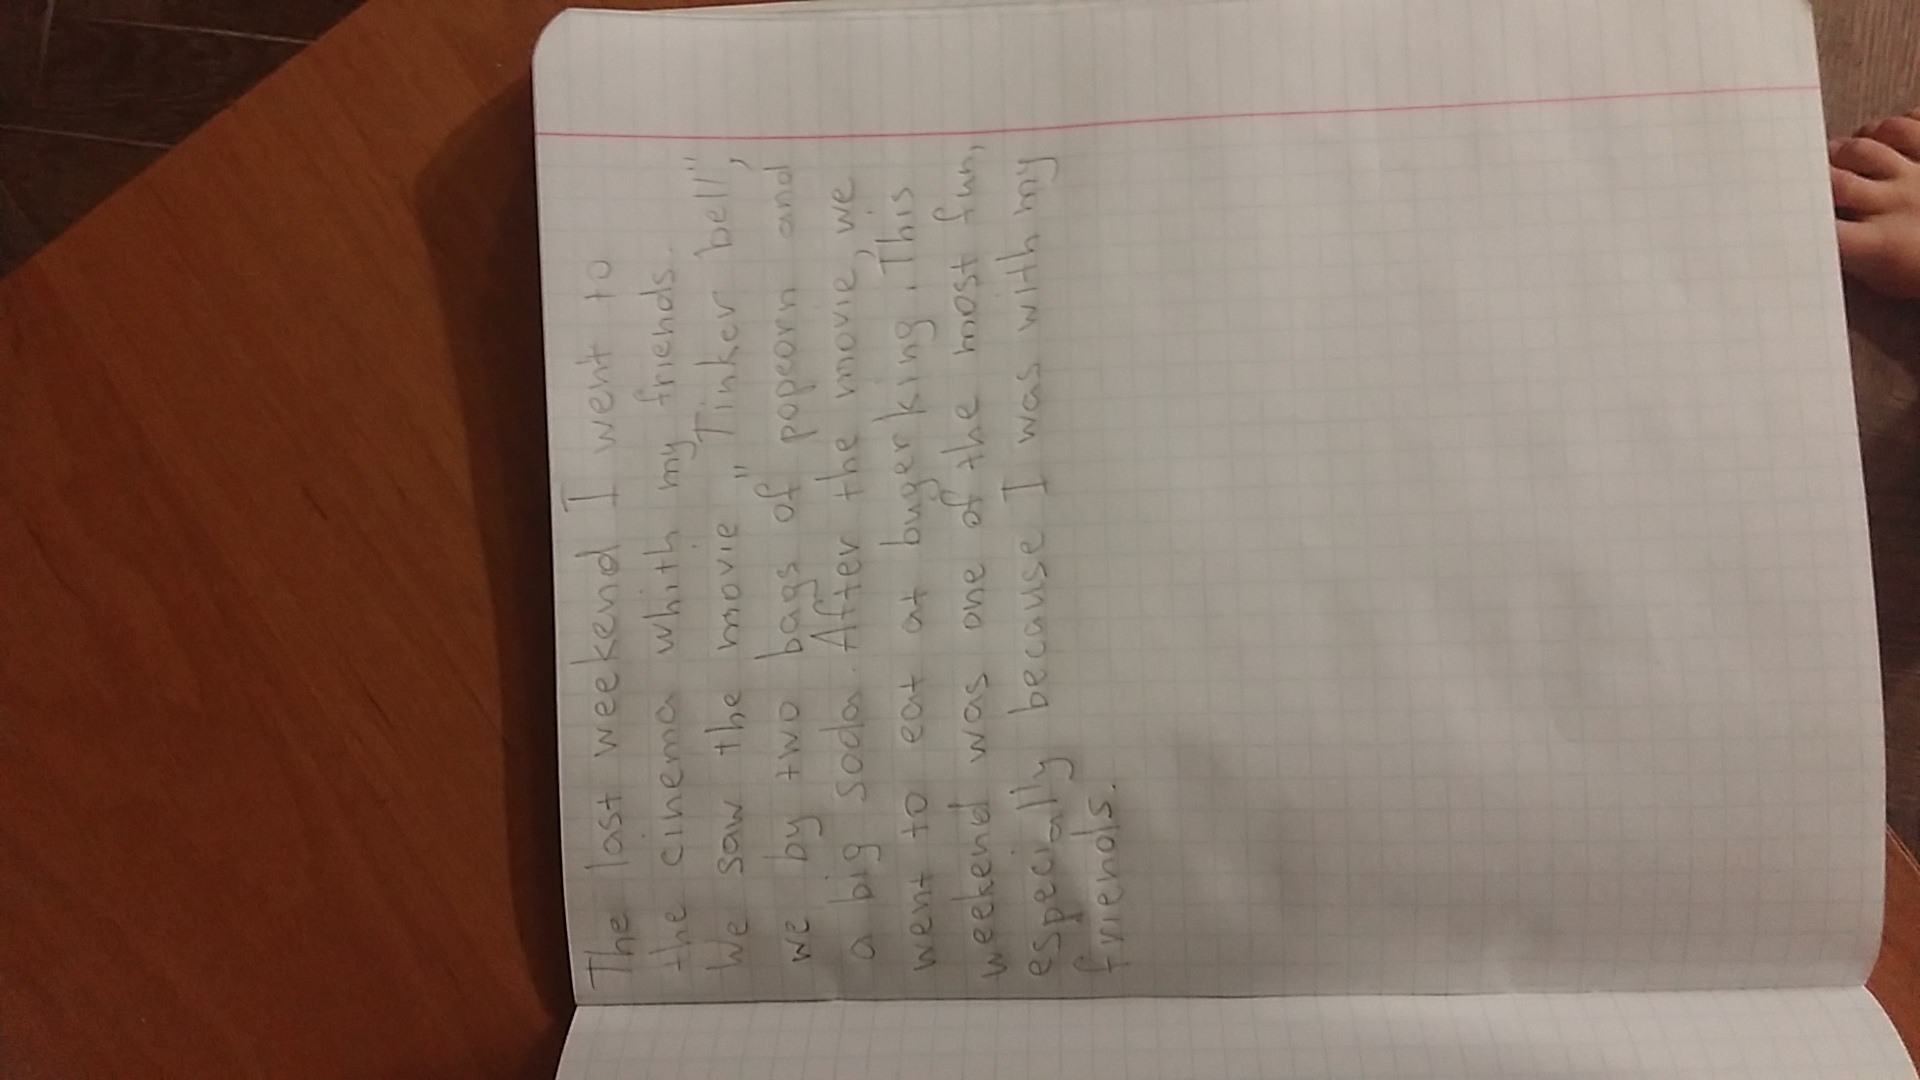 The last weekend I went to
the cinema whith my friends.
We saw the movie "Tinker bell",
we by two bags of popcorn and
a big soda. After the movie, we
went to eat at buger king. This
weekend was one of the most fun,
especially because I was with my
friends.